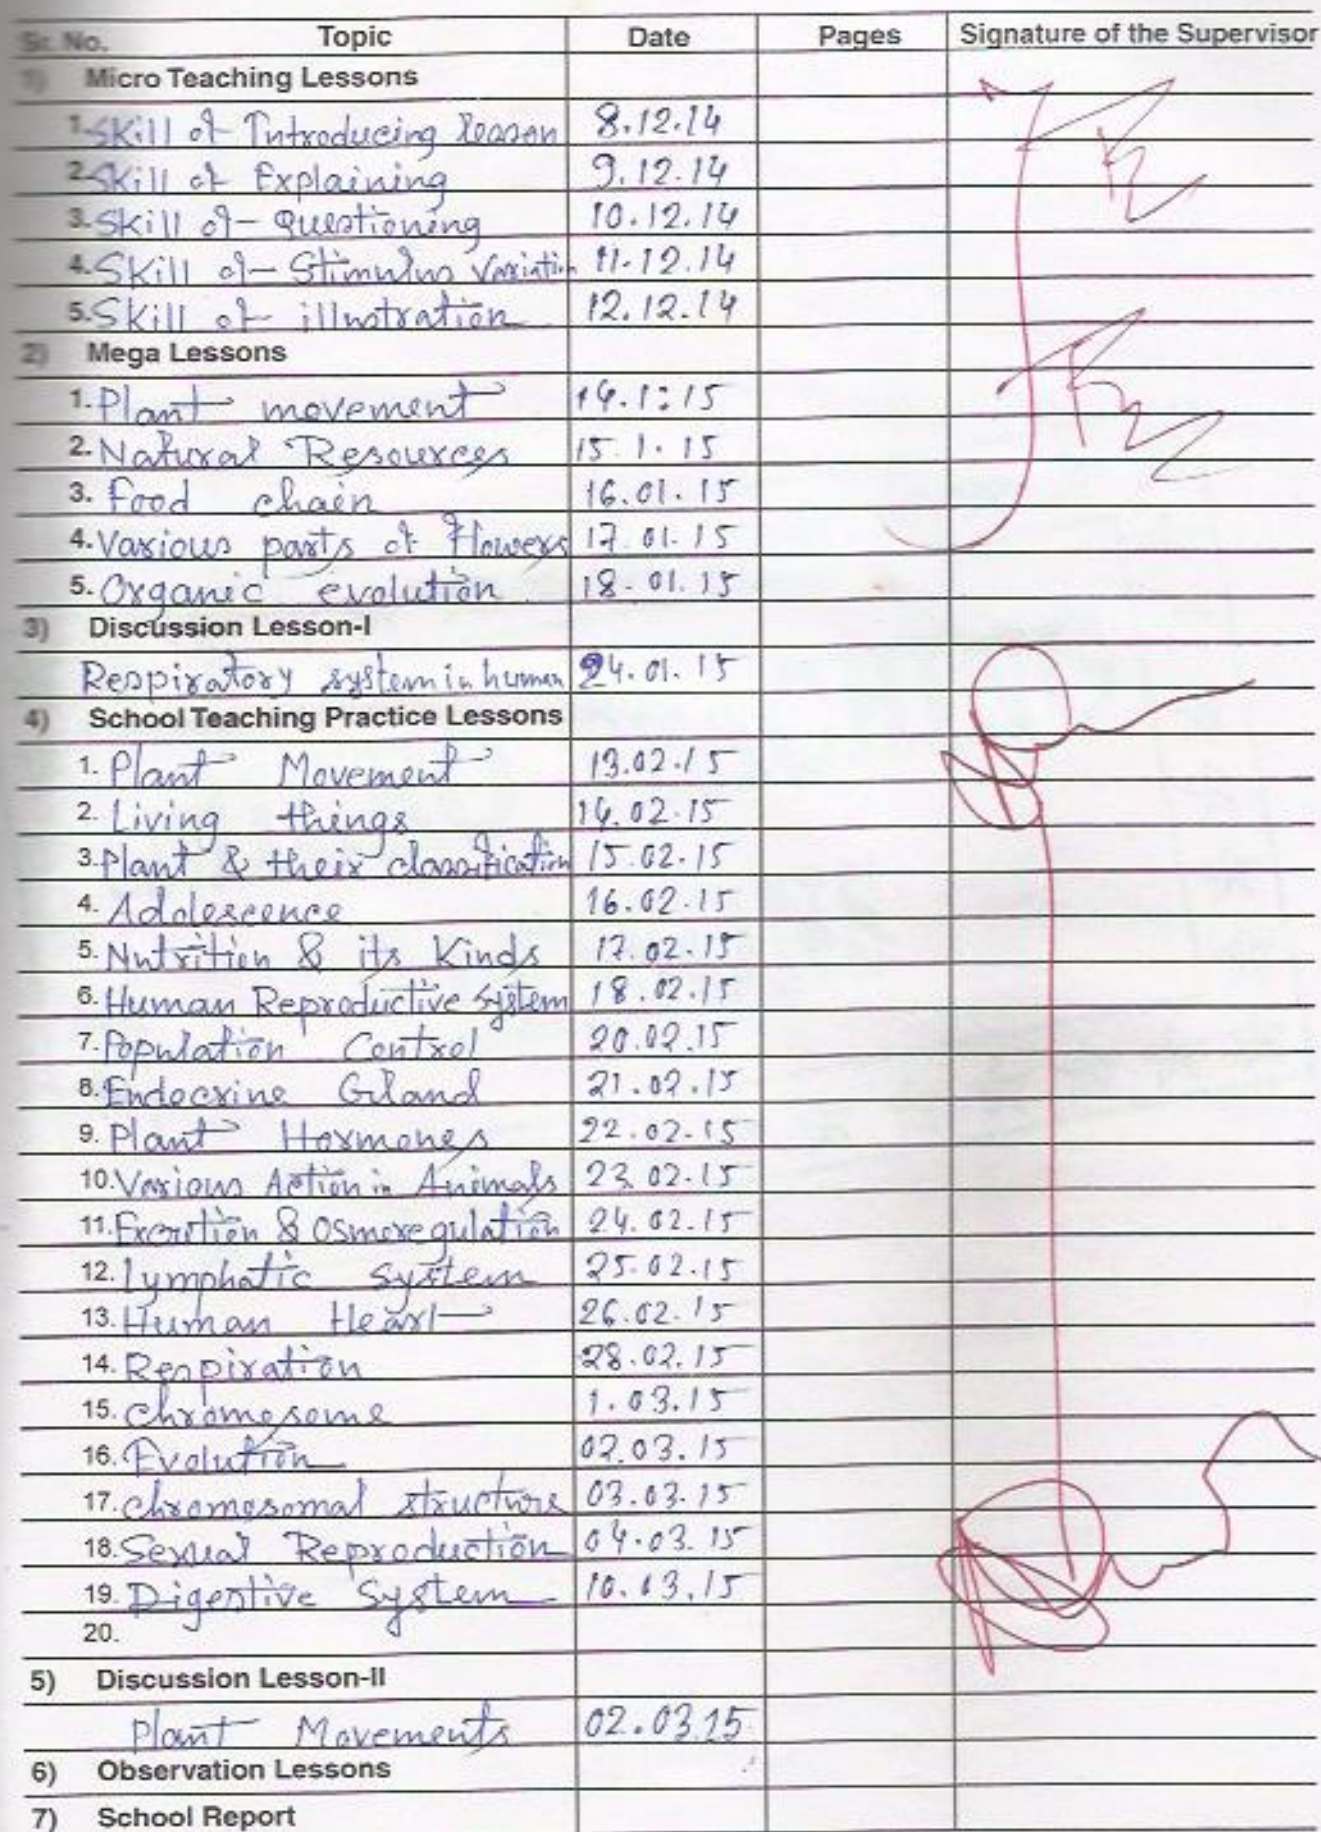 Sr. No. Topic Date Pages Signature of the Supervisor
1) Micro Teaching Lessons
1. Skill of Introducing leason 8.12.14
2. Skill of Explaining 9.12.14
3. Skill of Questioning 10.12.14
4. Skill of Stimulus Variation 11.12.14
5. Skill of illustration 12.12.14
2) Mega Lessons
1. Plant movement 14.1.15
2. Natural Resources 15.1.15
3. Food chain 16.01.15
4. Various parts of Flowers 17.01.15
5. Organic evolution 18.01.15
3) Discussion Lesson-I
Respiratory system in human 24.01.15
4) School Teaching Practice Lessons
1. Plant Movement 13.02.15
2. Living things 14.02.15
3. Plant & their classification 15.02.15
4. Adolescence 16.02.15
5. Nutrition & its Kinds 17.02.15
6. Human Reproductive System 18.02.15
7. Population Control 20.02.15
8. Endocrine Gland 21.02.15
9. Plant Hormones 22.02.15
10. Various Action in Animals 23.02.15
11. Excrution & Osmoregulation 24.02.15
12. Lymphatic System 25.02.15
13. Human Heart 26.02.15
14. Respiration 28.02.15
15. Chromosome 1.03.15
16. Evolution 02.03.15
17. Chromosomal structure 03.03.15
18. Sexual Reproduction 04.03.15
19. Digestive System 10.03.15
20.
5) Discussion Lesson-II
Plant Movements 02.03.15
6) Observation Lessons
7) School Report